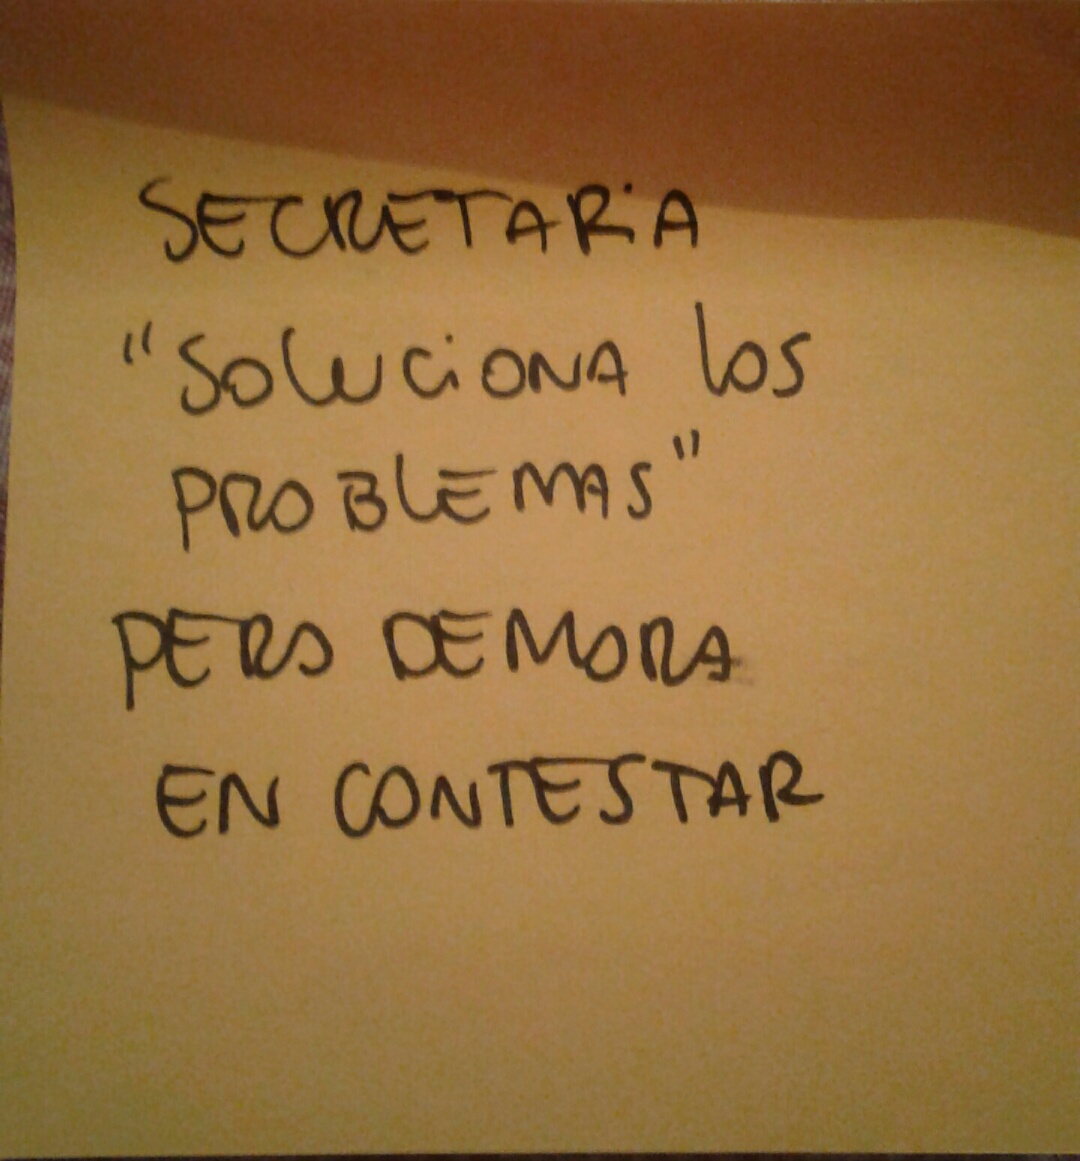 SECRETARiA
"SOLUCiONA lOS
PROBLEMAS"
PERO DEMORA
EN CONTESTAR